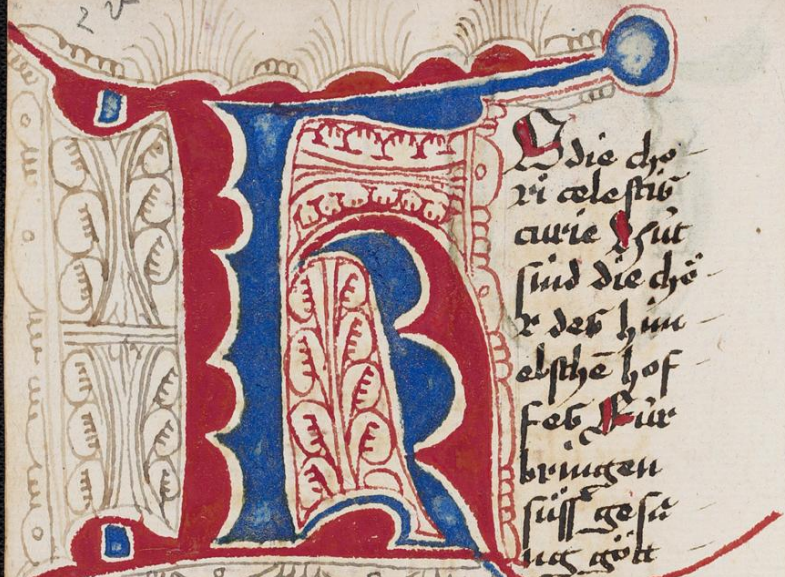 H
Odie cho-
ri celestis
curie Hüt
sind die chö-
r des him-
elschē hof
fes Für
bringen
süss gesä
ng gött